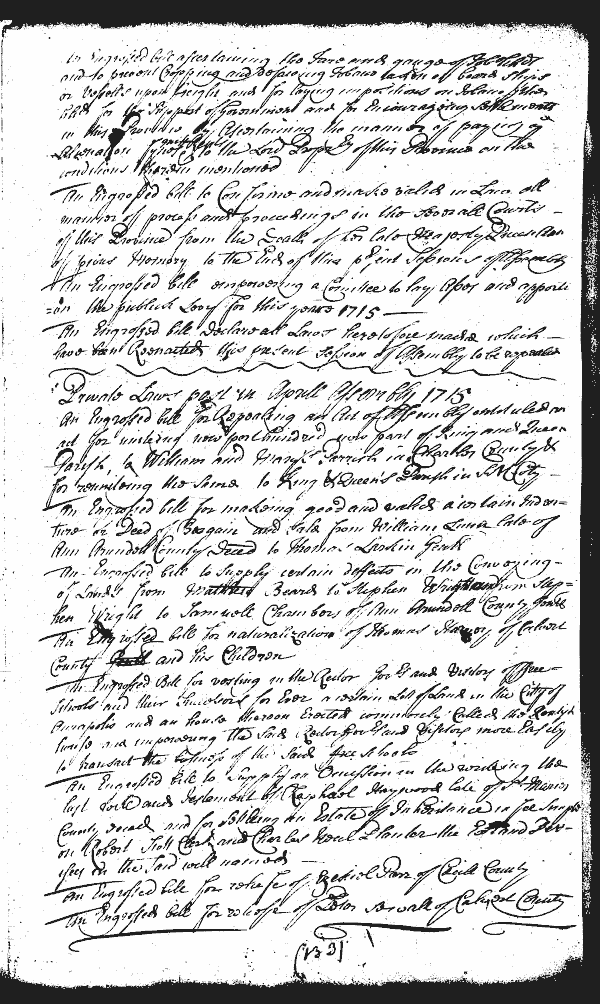 An Engrossed bill ascertaining the Tare and gauge of
and to prevent Cropping and defaceing Tobacco taken on board Ships
or Vessells upon freight and for laying impositions on Tobacco
bill for the Support of Government and for Encourageing
in this Province by Ascertaining the manner of paying ye
Alienation to the Lord Propr of this Province on the
conditions therein mentioned
An Engrossed bill to Confirme and make valid in Law all
manner of process and proceedings in the Severall Courts
of this Province from the Death of her late Majesty Queen Ann
of pious Memory to the End of this psent Session of Assembly
An Engrossed bill empowering a Comittee to lay Asses and apporti
=on the publick Levy for this yeare 1715
An Engrossed bill Declare all Laws heretofore made which
have been Reenacted this present Session of Assembly to be repealed
Private Laws past in Aprill Assembly 1715
An Engrossed bill for Repealing an Act of Assembly entituled an
act for uniteing new port hundred now part of King and Queen
Parish, to William and Mary Parrish in Charles County &
for reuniteing the Same to King & Queen's Parish in St M Coty
An Engrossed bill for makeing good and valid a certain Inden=
ture or Deed of Bargain and Sale from William late of
Ann Arundell County to Thomas Larkin Gent
An Engrossed bill to Supply certain deffects in the Conveying=
of Lands from Beard to Stephen from Step=
hen Wright to Samuell Chambers of Ann Arundell County
An Engrossed bill for naturalization of Thomas of Calvert
County and his Children
An Engrossed Bill for vesting in the Rector Gov and Visitors of ffree=
Schools and their Successors for Ever a certain Lott of Land in the City of
Annapolis and an house thereon Erected commonly Called the
house and impowering the Said Rector Gov and Visitors more Easily
to transact the business of the Said free Schools
An Engrossed bill to Supply an Omission in the writeing the
last Will and Testament of Raphael Haywood late of St Maries
County decd and for Settling an Estate of Inheritance in fee Simple
on Robert Clark and Charles Neal Planter the
in the Said will named
An Engrossed bill for release of Ezekiel of Cecill County
An Engrossed bill for release of Peter Sewall of Calvert County
(133)